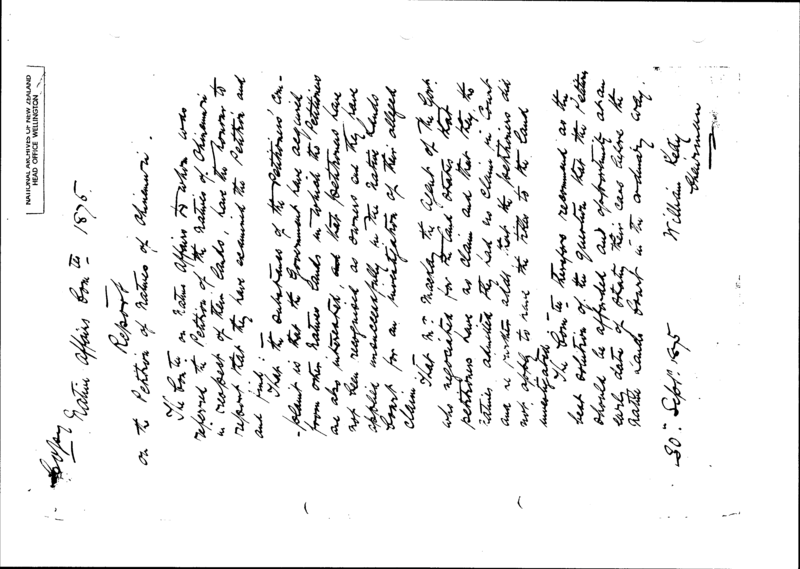 NATIONAL ARCHIVES OF NEW ZEALAND
HEAD OFFICE WELLINGTON
Copy
Native Affairs Comte 1875.
Report
on the Petition of Natives of Ohinemuri.
The Comte on Native Affairs to whom was
referred the Petition of the Natives of Ohinemuri
in respect of their lands, have the honor to
report that they have examined the Petition and
and find:—
That the substance of the Petitioners' com-
-plaint is that the Government have acquired
from other Natives lands in which the Petitioners
are also interested, and that petitioners have
not been recognised as owners and they have
applied unsuccessfully in the Native Lands
Court for an investigation of their alleged
claim
That Mr Mackay the Agent of the Govt.
who negotiated for the land states that
petitioners have no claim and that they, the
Natives admitted they had no claim in Court
and he further adds that the petitioners did
not apply to have the titles to the land
investigated
The Comte therefore recommend as the
best solution of the question that the Petitrs
should be afforded an opportunity at an
early date of stating their case before the
Native Lands Court in the ordinary way.
William Kelly
Chairman
30th Septr. 1875